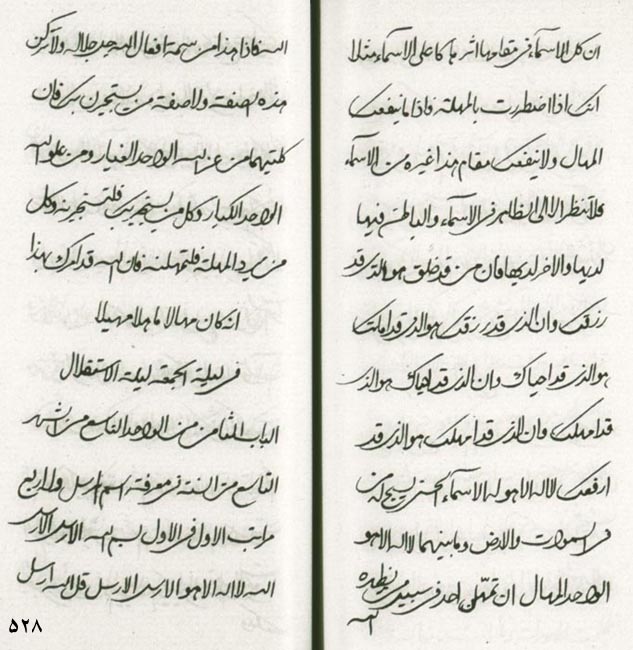 ان كل الاسماء في مقامها اثر ما كا على الاسماء مثلا
انك اذا اضطررت بالمهلة فاذا ما ينفعك
المهال ولا ينفعك مقام هذا غيره من الاسماء
فلا تنظر الا الى الظاهر في الاسماء والباطن فيها
لديها والاخر لديها فان من قد خلق هو الذي قد
رزقك وان الذي قد رزقك هو الذي قد اماتك
هو الذي قد احياك وان الذي قد احياك هو الذي
قد امهلك وان الذي قد امهلك هو الذي قد
ارفعك لا اله الا هو له الاسماء الحسنى يسبح له من
في السموات والارض وما بينهما لا اله الا هو
الواحد المهال ان تمهلن احد في سبيل من يظهره
الله
الله فاذا هذا من سمة افعال الله جل جلاله ولا تركن
هذه الصفة ولا صفة من يستجيرن بك فان
كلتيهما من عند الله الواحد الغيار ومن علو الله
الواحد الكبار وكل من يستجيرن بك فلتستجيرنه وكل
من يريد المهلة فلتمهلنه فان الله قد امرك بهذا
انه كان مهالا ماهلا مهيلا
في ليلة الجمعة ليلة الاستقلال
الباب الثامن من الواحد التاسع من الشهر
التاسع من السنة في معرفة اسم ارسل وله اربع
مراتب الاول في الاول بسم الله الارسل الارسل
الله لا اله الا هو الارسل الارسل قل الله ارسل
٥٢٨